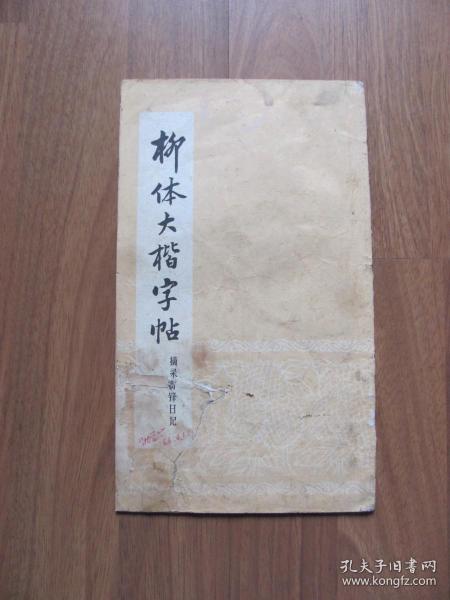 柳体大楷字帖
摘录雷锋日记
孔夫子旧书网
www.kongfz.com